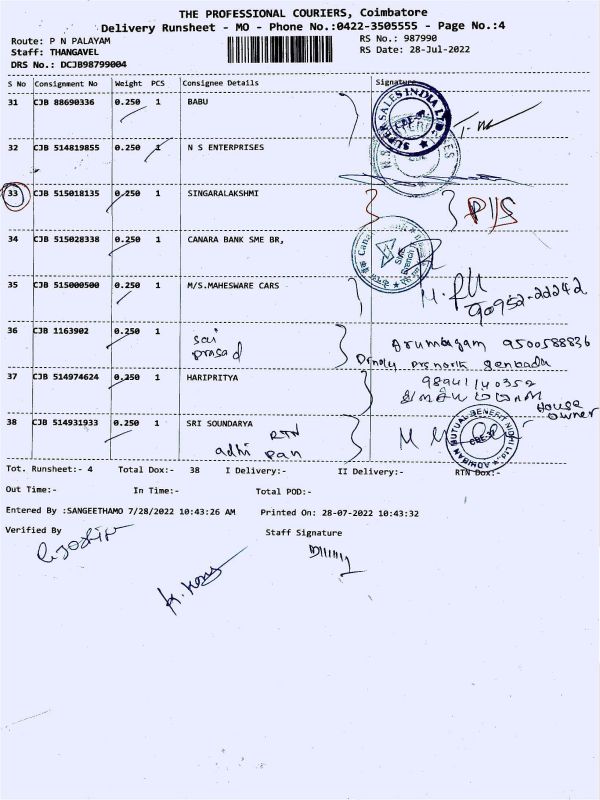 THE PROFESSIONAL COURIERS, Coimbatore
Delivery Runsheet - MO - Phone No.:0422-3505555 - Page No.:4
Route: P N PALAYAM RS No.: 987990
Staff: THANGAVEL RS Date: 28-Jul-2022
DRS No.: DCJB98799004
S No Consignment No Weight PCS Consignee Details Signature
31 CJB 88690336 0.250 1 BABU
SUPER SALES INDIA LTD
32 CJB 514819855 0.250 1 N S ENTERPRISES
33 CJB 515018135 0.250 1 SINGARALAKSHMI P/S
34 CJB 515028338 0.250 1 CANARA BANK SME BR,
35 CJB 515000500 0.250 1 M/S.MAHESWARE CARS
90952-22242
36 CJB 1163902 0.250 1 sai prasad
Arumugam 9500588836
37 CJB 514974624 0.250 1 HARIPRITYA 9894140352
House owner
38 CJB 514931933 0.250 1 SRI SOUNDARYA
RTN
adhi pan
MUTUAL BENEFIT NIDHI Ltd.
Tot. Runsheet:- 4 Total Dox:- 38 I Delivery:- II Delivery:- RTN Dox:-
Out Time:- In Time:- Total POD:-
Entered By :SANGEETHAMO 7/28/2022 10:43:26 AM Printed On: 28-07-2022 10:43:32
Verified By Staff Signature